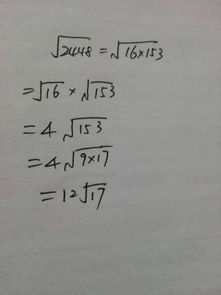 √2448 = √16×153
= √16 × √153
= 4 √153
= 4 √9×17
= 12√17